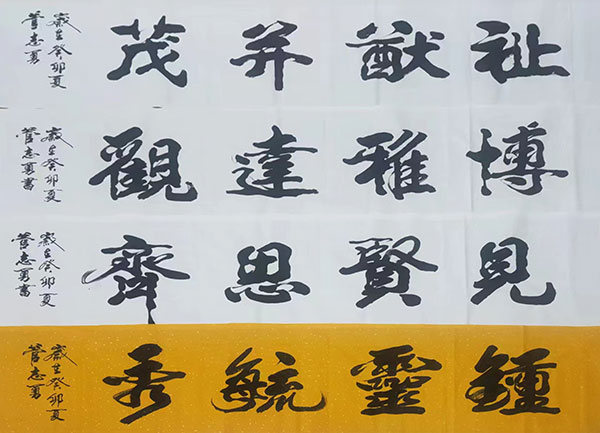 祉猷并茂
歲在癸卯夏
管志勇
博雅達觀
歲在癸卯夏
管志勇書
見賢思齊
歲在癸卯夏
管志勇書
鍾靈毓秀
歲在癸卯夏
管志勇